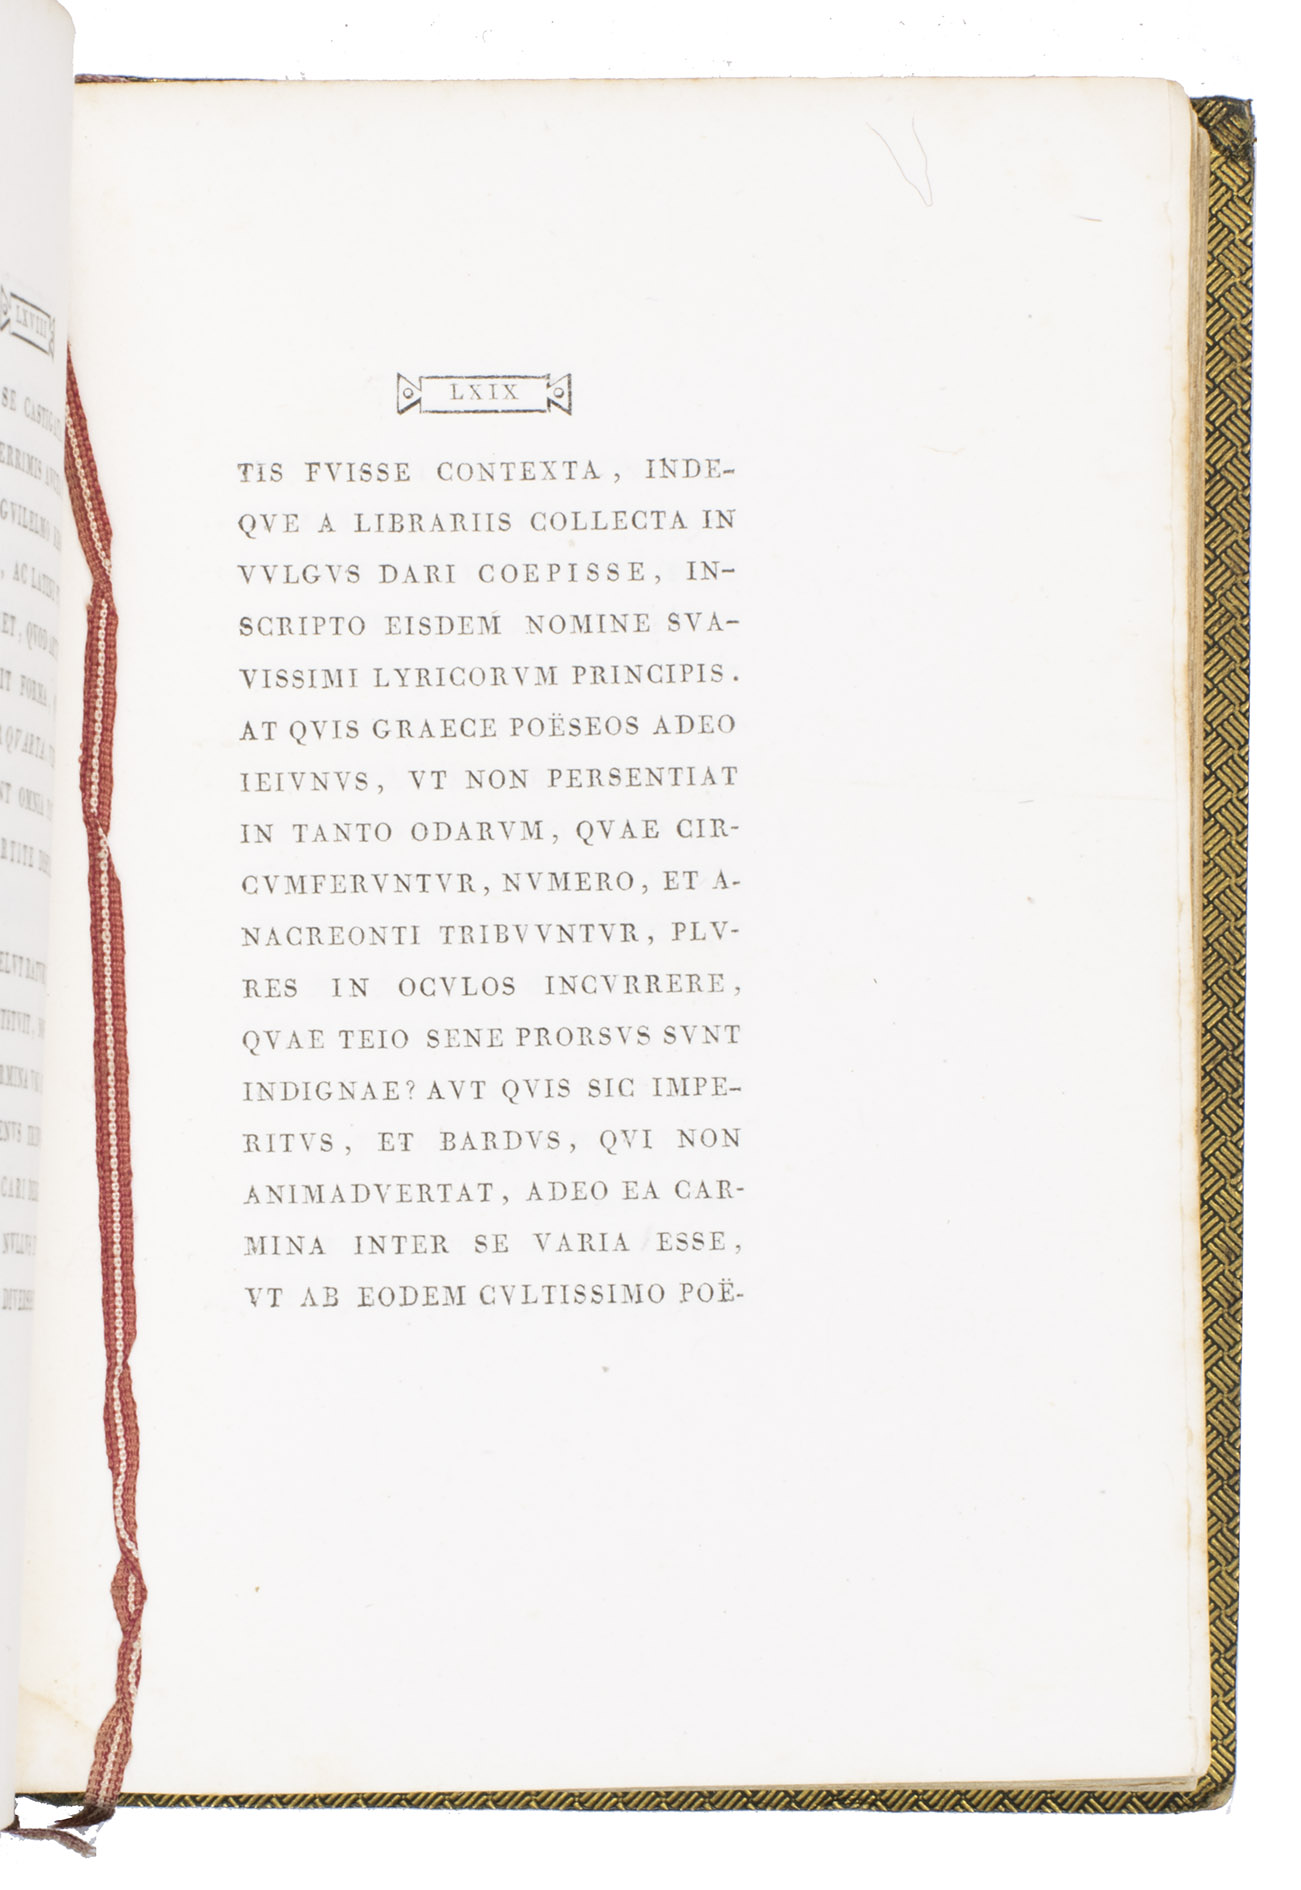 LXVIII
SE
LXIX
TIS FVISSE CONTEXTA, INDE-
QVE A LIBRARIIS COLLECTA IN
VVLGVS DARI COEPISSE, IN-
SCRIPTO EISDEM NOMINE SVA-
VISSIMI LYRICORVM PRINCIPIS.
AT QVIS GRAECE POËSEOS ADEO
IEIVNVS, VT NON PERSENTIAT
IN TANTO ODARVM, QVAE CIR-
CVMFERVNTVR, NVMERO, ET A-
NACREONTI TRIBVVNTVR, PLV-
RES IN OCVLOS INCVRRERE,
QVAE TEIO SENE PRORSVS SVNT
INDIGNAE? AVT QVIS SIC IMPE-
RITVS, ET BARDVS, QVI NON
ANIMADVERTAT, ADEO EA CAR-
MINA INTER SE VARIA ESSE,
VT AB EODEM CVLTISSIMO POË-